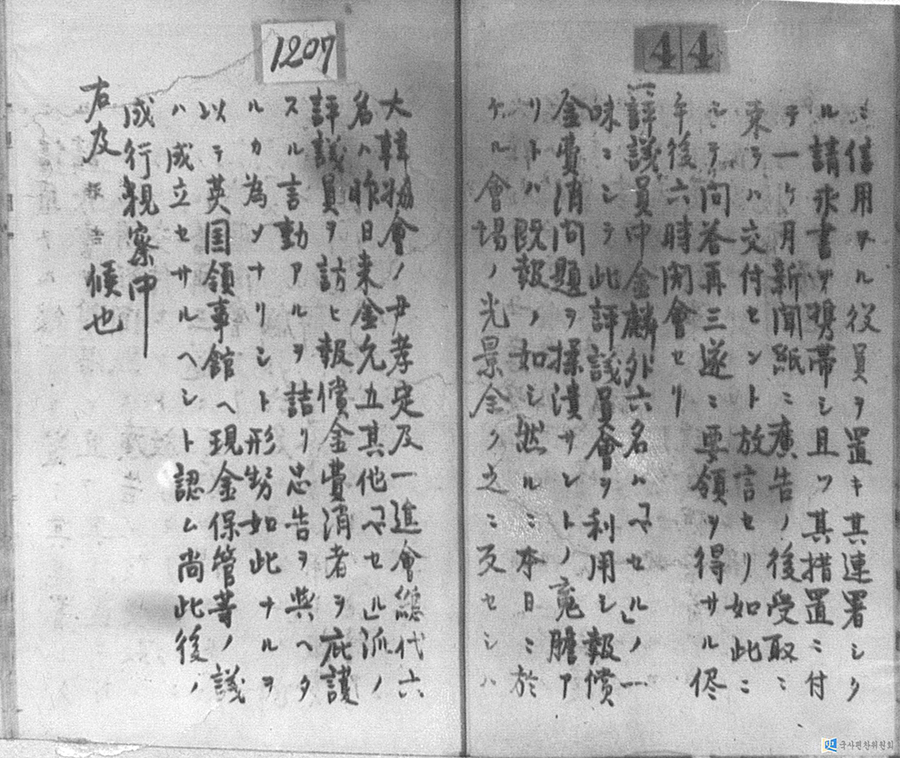 44
ミ信用ヲル役員ヲ置キ其連署シタ
ル請求書ヲ携帯シ且ツ其措置ニ付
テ一ケ月新聞紙ニ廣告ノ後受取ニ
来ラハ交付セント放言セリ如此ニ
シテ問答再三遂ニ要領ヲ得サル侭
午後六時開會セリ
一、評議員中金麟外六名ハ「マセル」ノ一
味ニシテ此評議員會ヲ利用シ報償
金費消問題ヲ揉潰サントノ魂膽ア
リトハ既報ノ如シ然ルニ本日ニ於
ケル會場ノ光景全ク之ニ反セシハ
1207
大韓協會ノ尹孝定及一進會總代六
名ハ昨日来金允五其他「マセル」派ノ
評議員ヲ訪ヒ報償金費消者ヲ庇護
スル言動アルヲ詰リ忠告ヲ與ヘタ
ルカ為メナリシト形勢如此ナルヲ
以テ英国領事館ヘ現金保管等ノ議
ハ成立セサルヘシト認ム尚此後ノ
成行視察中
右及報告候也
국사편찬위원회